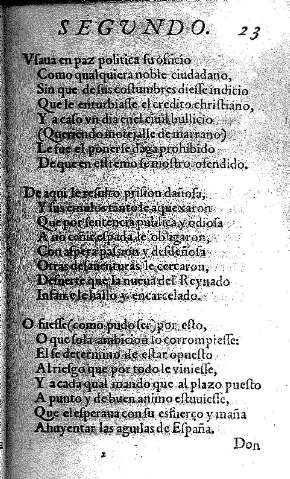 SEGVNDO. 23
Vsaua en paz politica su oficio
Como qualquiera noble ciudadano,
Sin que de sus costumbres diesse indicio
Que le enturbiasse el credito christiano,
Y a caso vn dia en el ciuil bullicio
(Queriendo motejalle de marrano)
Le fue el ponerse daga prohibido
De que en estremo se mostro ofendido.
De aqui le resulto prision dañosa,
Y sus emulos tanto le aquexaron
Que por sentencia publica y odiosa
A no ceñir espada le obligaron,
Con aspera passion y desdeñosa
Otras desauenturas le cercaron,
De suerte que la nueua del Reynado
Infame le hallo y encarcelado.
O fuesse (como pudo ser) por esto,
O que sola ambicion lo corrompiesse:
El se determinò de estar opuesto
Al riesgo que por todo le viniesse,
Y a cada qual mando que al plazo puesto
A punto y de buen animo estuuiesse,
Que el esperaua con su esfuerço y maña
Ahuyentar las aguilas de España,
2
Don